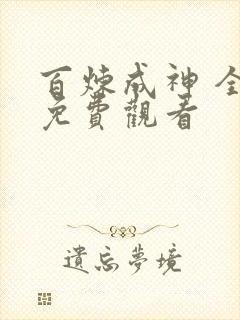 百煉成神 全
免費觀看
遺忘夢境